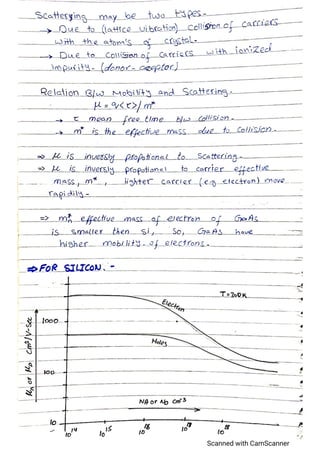 Scattering may be two types.
→ Due to (lattice vibration) collision of carriers
with the atom's of crystal.
→ Due to collision of carriers with ionized
impurity. (donor-acceptor)
Relation B/w Mobility and Scattering.
μ = q<τ>/m*
→ τ mean free time b/w collision.
→ m* is the effective mass due to collision.
⇒ μ is inversly propotional to Scattering.
⇒ μ is inversly propotional to carrier effective
mass, m*, lighter carrier (e.g electron) move
rapidily.
⇒ m*, effective mass of electron of GaAs
is smaller then Si, So, GaAs have
higher mobility of electrons.
⇒ FOR SILICON. -
T=300K
Electron
1000
Holes
μn or μp cm²/V-Sec
100
NA or ND cm-3
10
10^14 10^15 10^16 10^17 10^18
Scanned with CamScanner